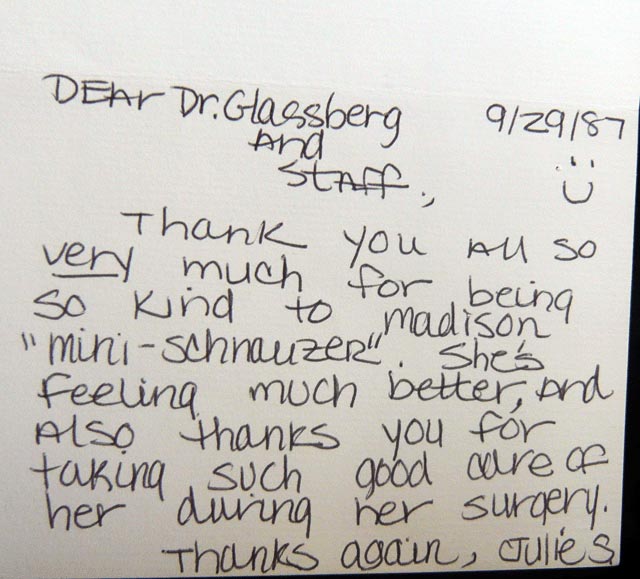 DEAr Dr. Glassberg 9/29/87
And
Staff,
Thank you All so
very much for being
so kind to madison
"mini-schnauzer". She's
feeling much better, And
Also thanks you for
taking such good care of
her during her surgery.
Thanks again, Julie S